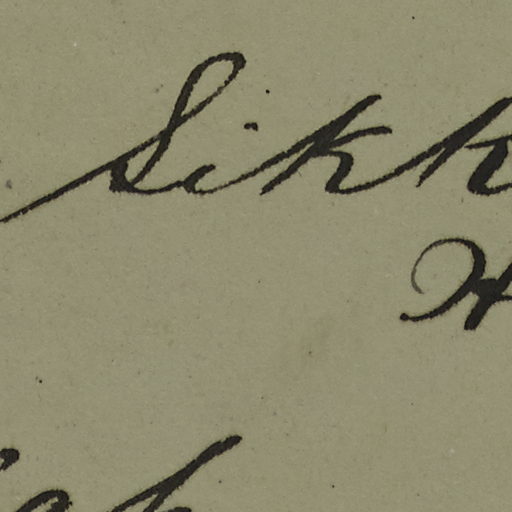 Sikk
H